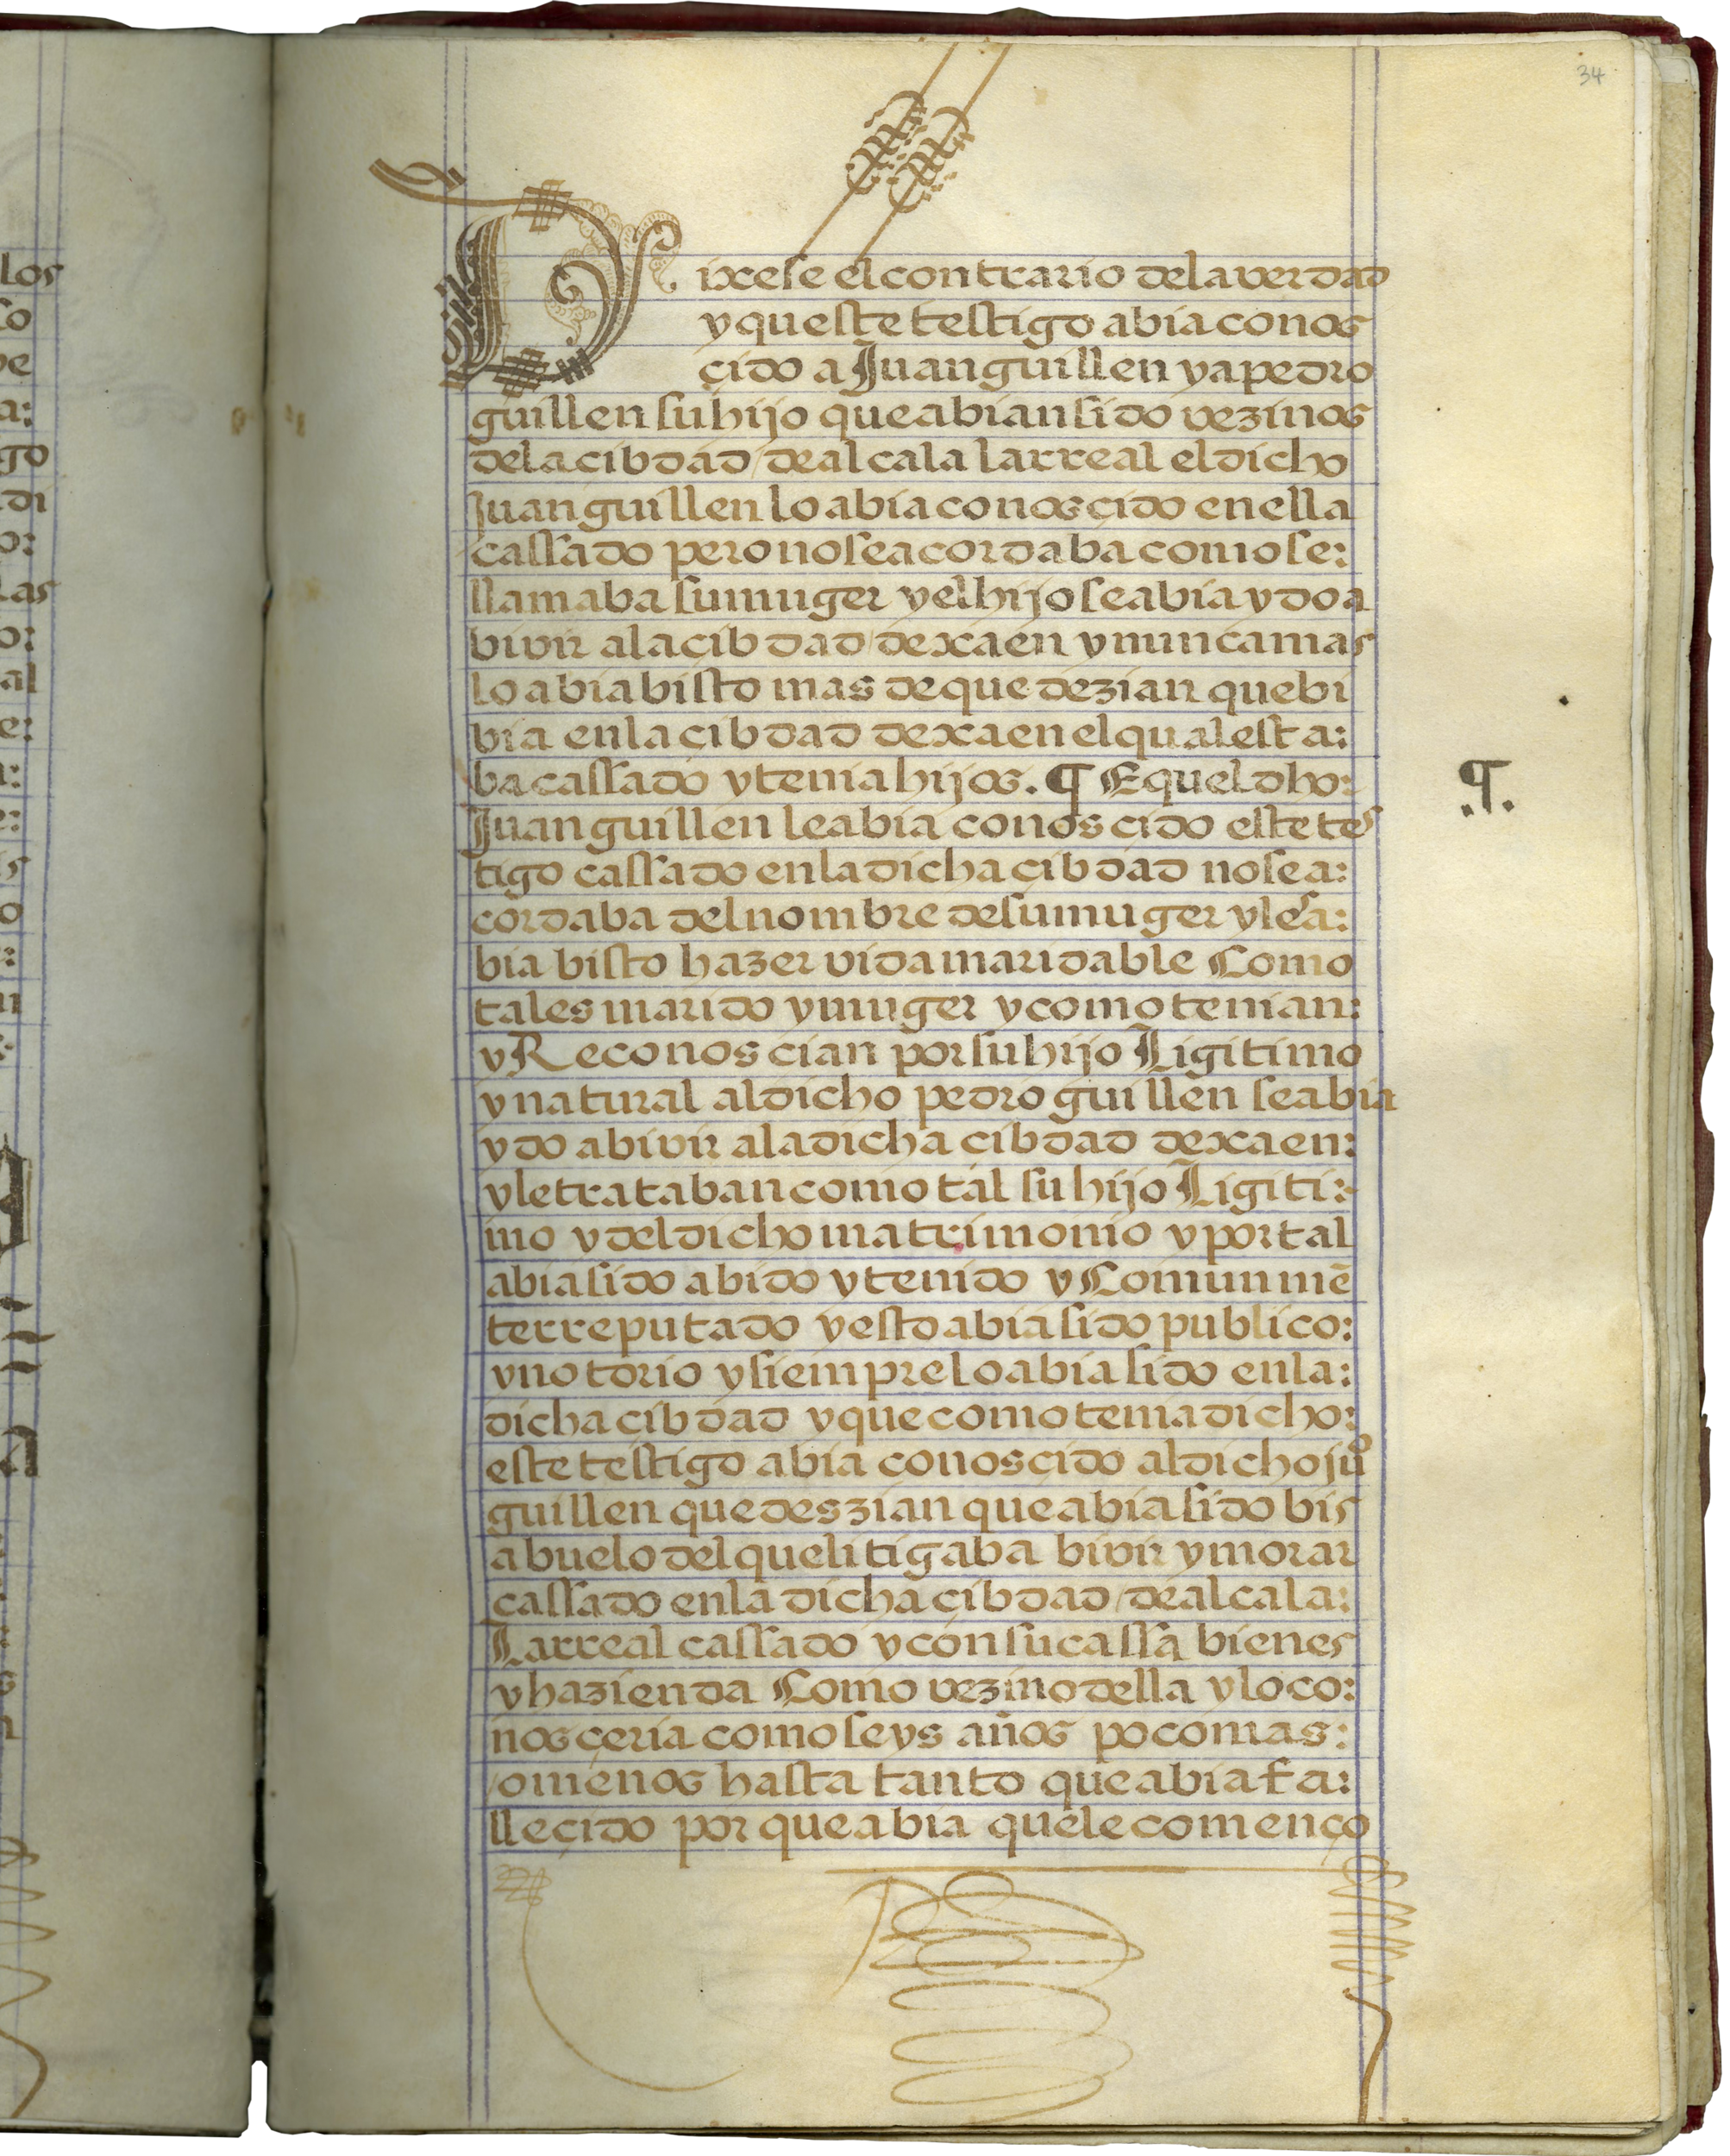 34
Dixese el contrario de la verdad
y que este testigo abia conos
çido a Juan guillen y a pedro
guillen su hijo que abian sido vezinos
de la cibdad / de alcala la rreal el dicho
Juan guillen lo abia conosçido en ella
cassado pero no se acordaba como se:
llamaba su muger y el hijo se abia ydo a
bivir a la cibdad / de xaen y nunca mas
lo abia bisto mas de que dezian que bi
bia en la çibdad de xaen el qual esta:
ba cassado y tenia hijos. ¶ E quel dho:
Juan guillen le abia conosçido este tes
tigo cassado en la dicha çibdad no se a:
cordaba del nombre de su muger y les a:
bia bisto hazer vida maridable Como
tales marido y muger y como tenian:
y Reconoscian por su hijo Ligitimo
y natural al dicho pedro guillen se abia
ydo a bivir a la dicha cibdad de xaen:
y le trataban como tal su hijo Ligiti:
mo y del dicho matrimonio y por tal
abia sido abido y tenido y Comunmē
te rreputado y esto abia sido publico:
y notorio y siempre lo abia sido en la:
dicha cibdad y que como tenia dicho:
este testigo abia conosçido al dicho juº
guillen que deszian que abia sido bis
abuelo del que litigaba bivir y morar
cassado en la dicha çibdad / de alcala:
La rreal cassado y con su cassa bienes
y hazienda Como vezino della y lo co:
nosçeria como seys años poco mas:
/o menos hasta tanto que abia fa:
lleçido por que abia que le començo